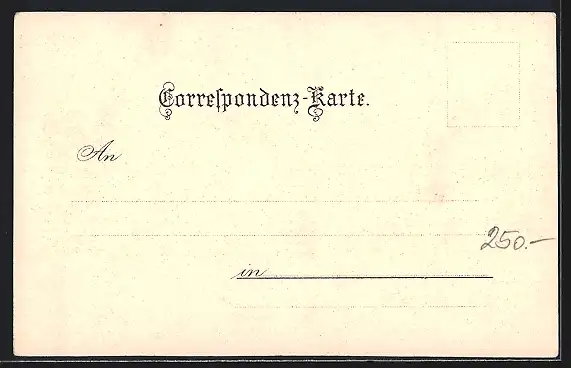 Correſpondenz-Karte.
An
250.-
in